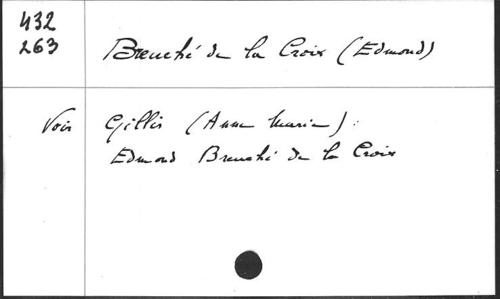 432
263
Breuché de la Croix (Edmond)
Voir Gillis (Anne Marie) :
Edmond Breuché de la Croix